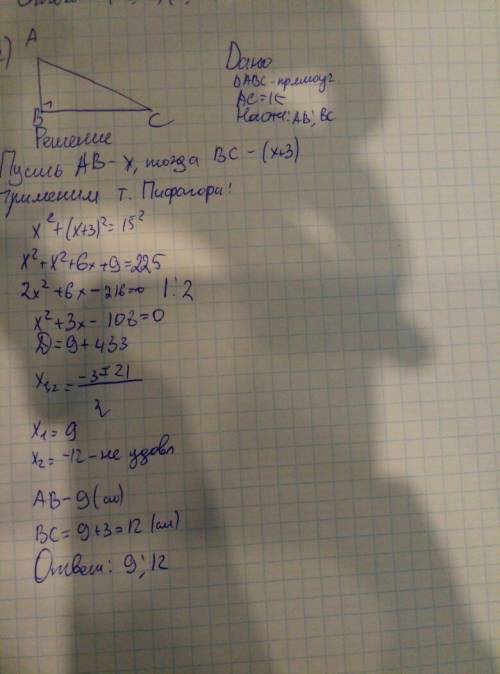 A
Дано
ΔABC - прямоуг
AC=15
Найти: AB; BC
B
C
Решение
Пусть AB - x, тогда BC - (x+3)
Применим т. Пифагора:
x²+(x+3)²=15²
x²+x²+6x+9=225
2x²+6x-216=0 |:2
x²+3x-108=0
D=9+433
x₁,₂= -3±21
2
x₁=9
x₂=-12 - не удовл
AB - 9 (см)
BC = 9+3=12 (см)
Ответ: 9; 12